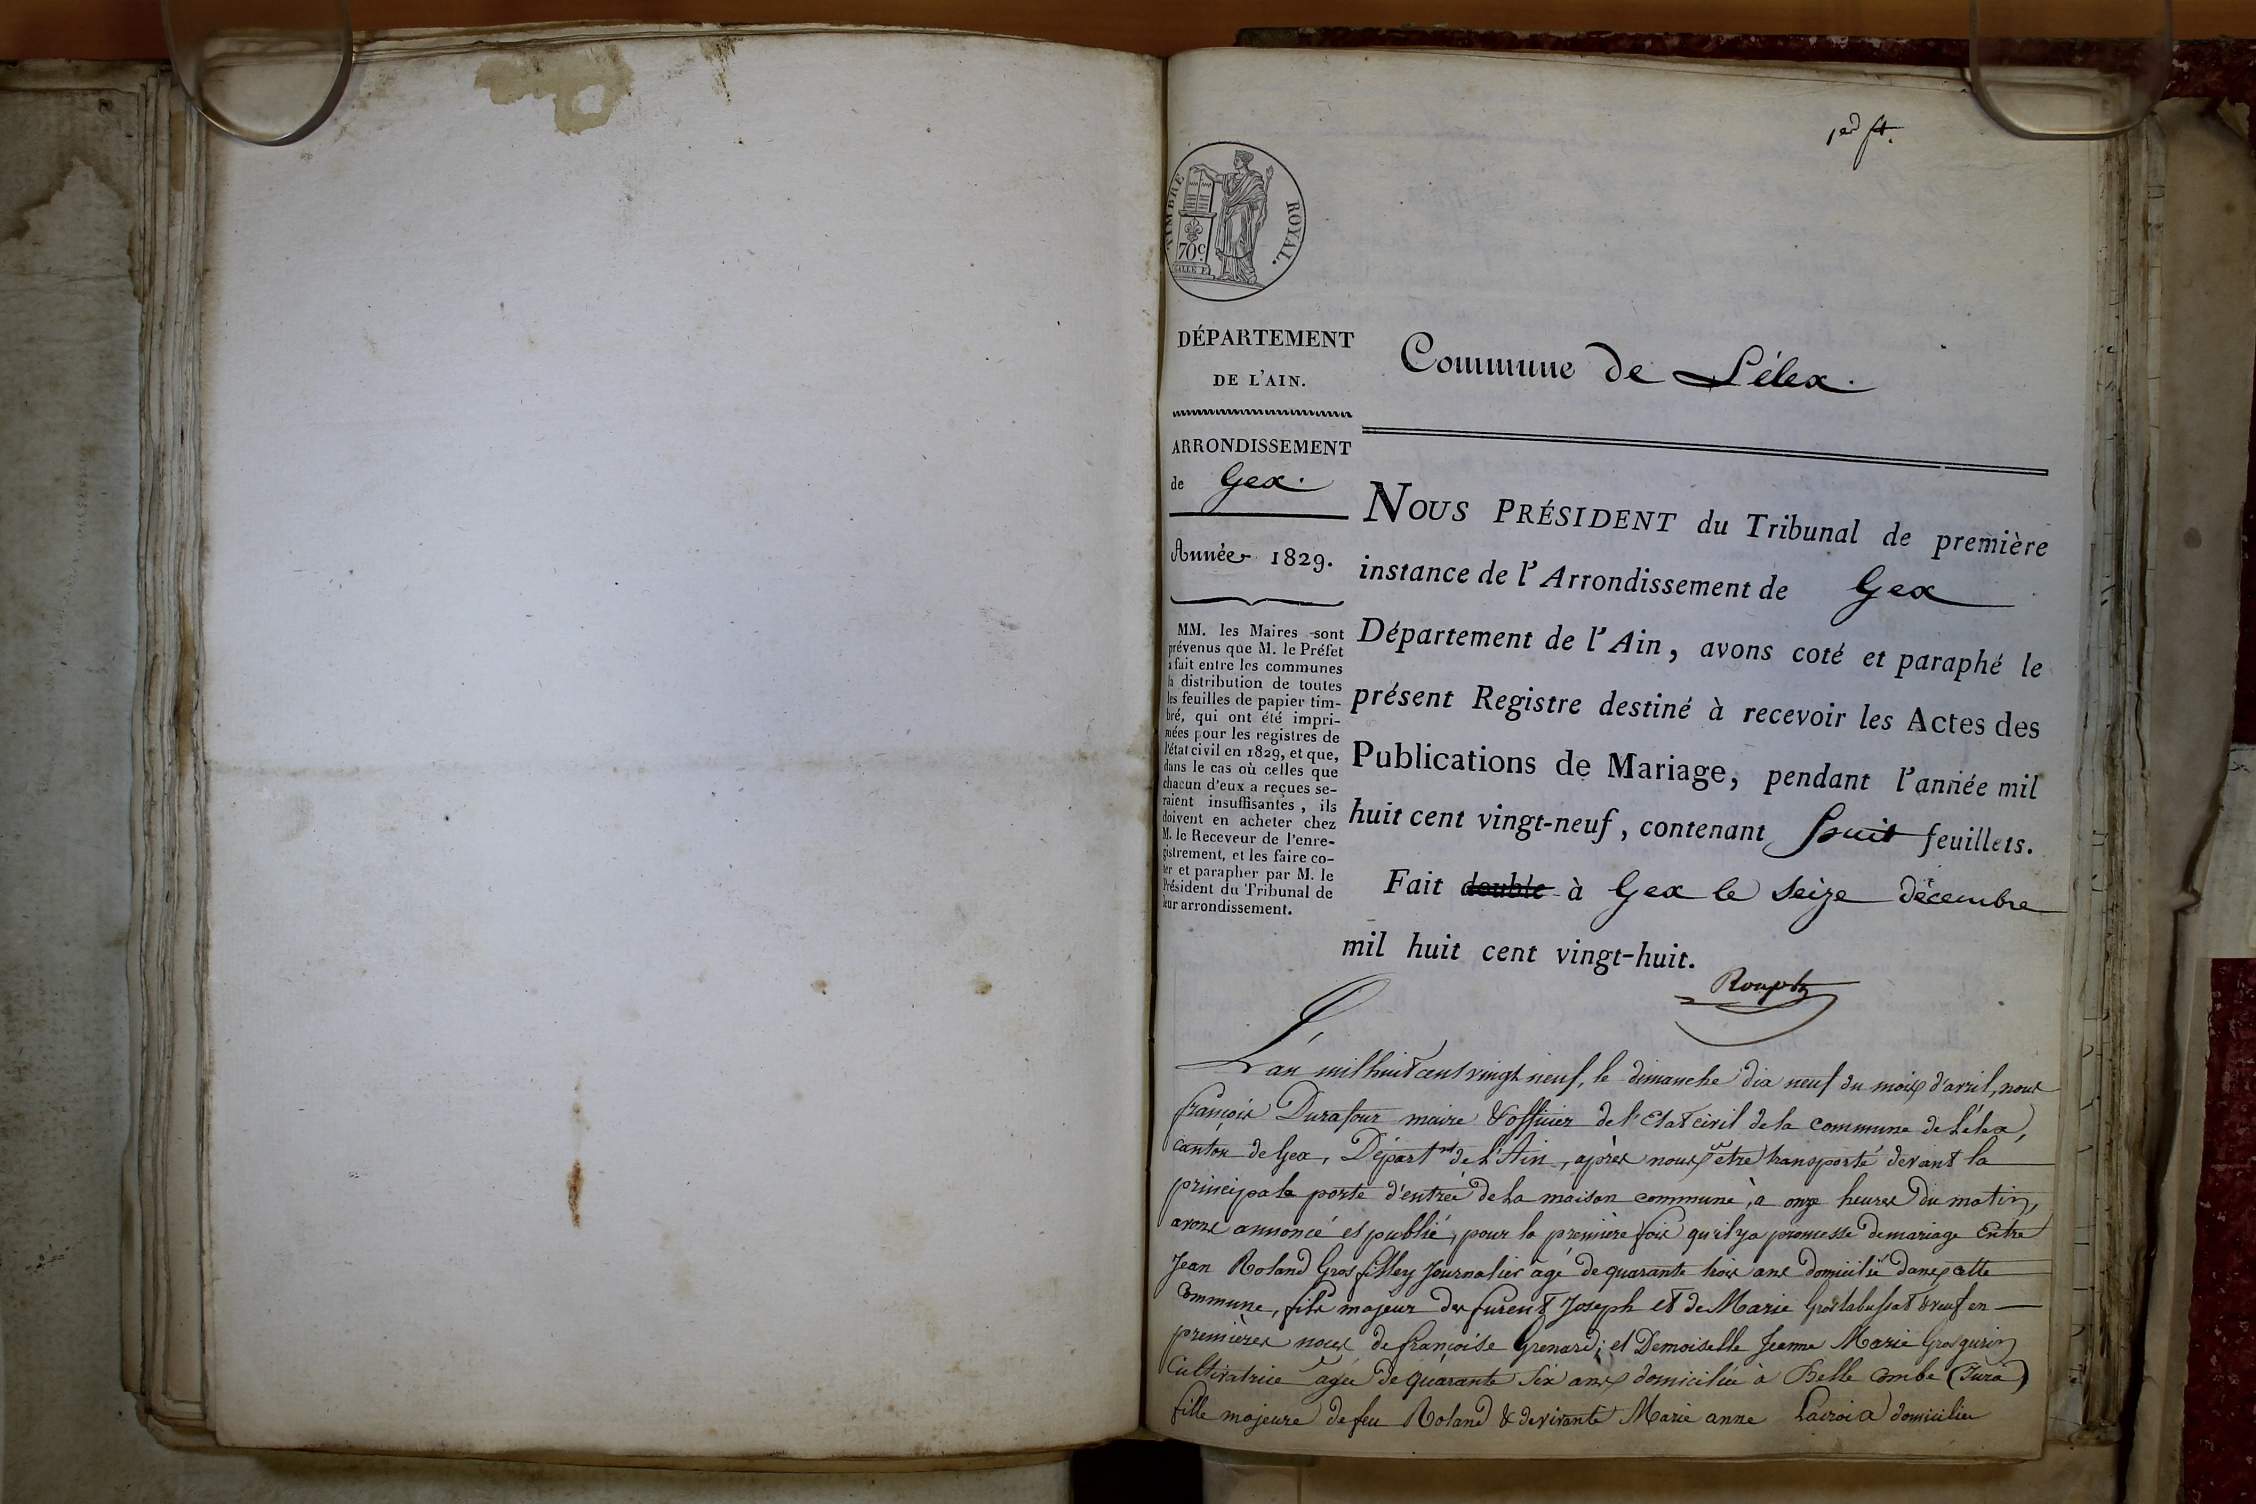 1er ft.
TIMBRE ROYAL.
70c.
DÉPARTEMENT
DE L'AIN.
Commune de Lélex.
ARRONDISSEMENT
de Gex.
Année 1829.
MM. les Maires sont
prévenus que M. le Préfet
a fait entre les communes
la distribution de toutes
les feuilles de papier tim-
bré, qui ont été impri-
mées pour les registres de
l'état civil en 1829, et que,
dans le cas où celles que
chacun d'eux a reçues se-
raient insuffisantes, ils
doivent en acheter chez
M. le Receveur de l'enre-
gistrement, et les faire co-
ter et parapher par M. le
Président du Tribunal de
leur arrondissement.
NOUS PRÉSIDENT du Tribunal de première
instance de l'Arrondissement de Gex
Département de l'Ain, avons coté et paraphé le
présent Registre destiné à recevoir les Actes des
Publications de Mariage, pendant l'année mil
huit cent vingt-neuf, contenant huit feuillets.
Fait double à Gex le seize décembre
mil huit cent vingt-huit.
L'an mil huit cent vingt neuf, le dimanche dix neuf du mois d'avril, nous
françois Durafour maire & officier de l'Etat civil de la commune de Lélex,
canton de Gex, Départnt de L'Ain, après nous être transporté devant la
principale porte d'entrée de la maison commune, à onze heures du matin,
avons annoncé et publié, pour la première fois qu'il y a promesse de mariage Entre
Jean Roland Grosfilley Journalier âgé de quarante trois ans domicilié dans cette
Commune, fils majeur de furent Joseph et de Marie Groslabussat & veuf en
premières noces de françoise Grenard; et Demoiselle Jeanne Marie Grosgurin
Cultivatrice agée de quarante six ans domiciliée à Belle combe (Jura)
fille majeure de feu Roland & de vivante Marie anne Lacroix domicilieé